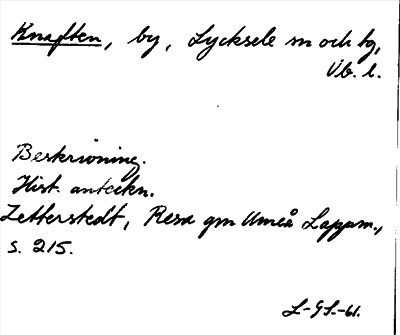 Knaften, by, Lycksele sn och tg,
Vb. l.
Beskrivning.
Hist. anteckn.
Zetterstedt, Resa gm Umeå Lappm.,
s. 215.
L-GS.-61.